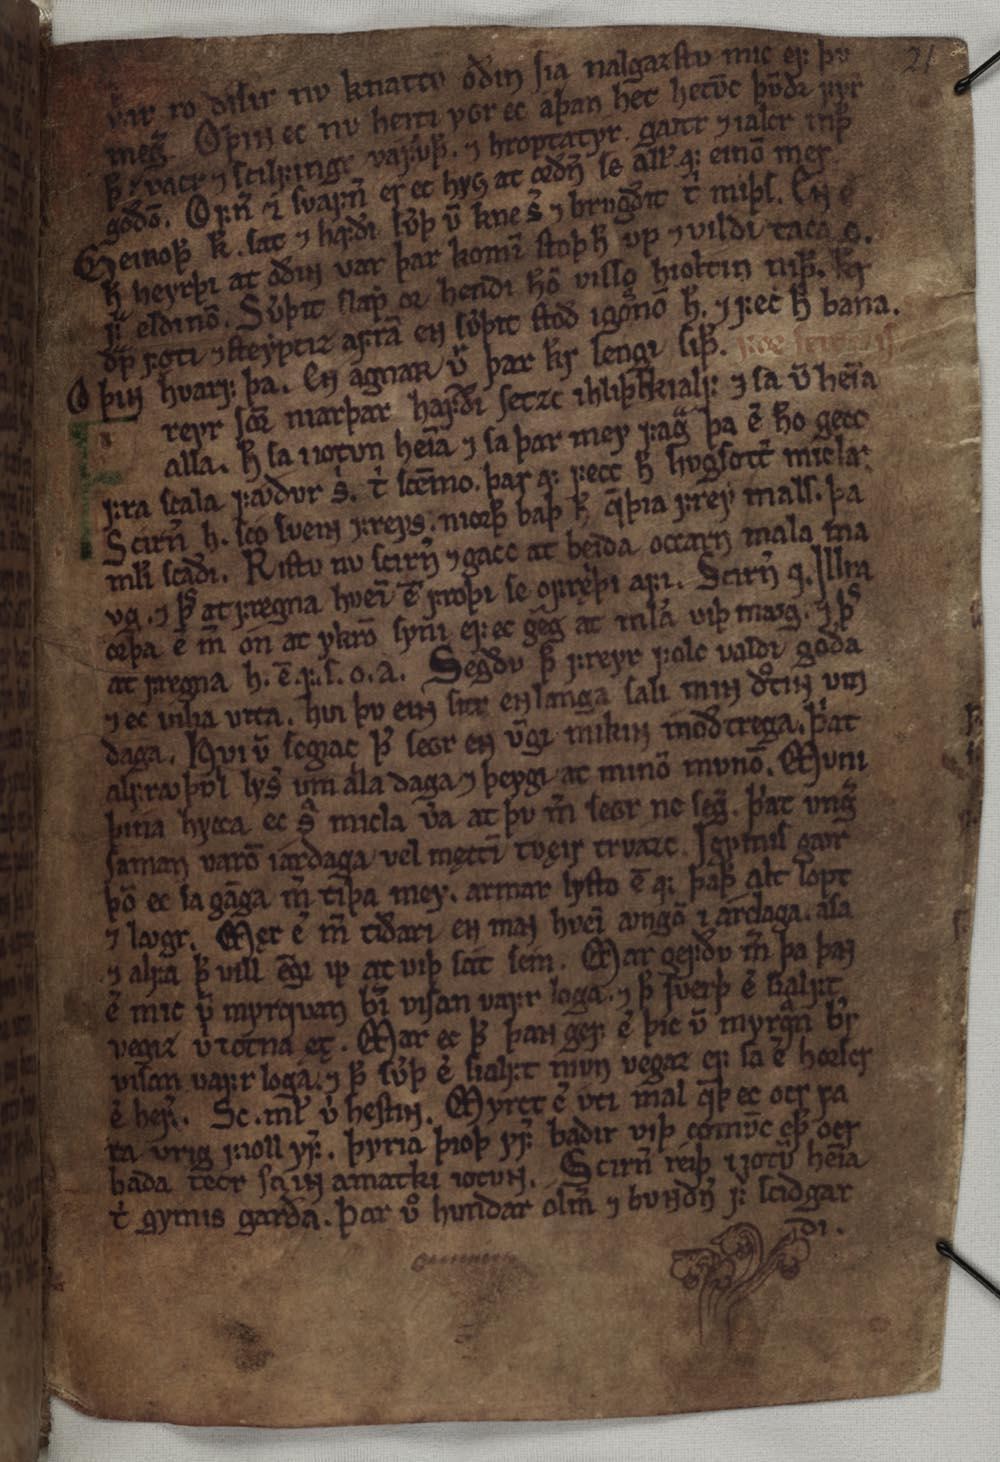 21
úfar ro dísir nv knáttv oðin siá nalgaztv mic ef þv
megir. Oþin ec nv heiti ygr ec aþan het hetvmc þvndr fyr
þ̄. vacr ⁊ scilfingr vafvþ̄. ⁊ hroptatyr. gautr ⁊ ialcr mþ̄
goðō. Ofn̄ ⁊ svafn̄ er ec hyg at orðn̄ se all̄ af einō mer
Geirroþ̄ k̄. sat ⁊ hafði sv̄þ v̄ kne s̄ ⁊ brugðit t̄ miþs. En e
h̄ heyrþi at oðin var þar komī stoþ h̄ vp ⁊ vildi taca o.
f̄ eldinō. Sv̄þit slap̄ or hendi hō visso hioltin niþ̄. k̄r
drp̄ foti ⁊ steyptiz afrā en sv̄þit stóð igǫgnō h̄. ⁊ fec h̄ bana.
Oþin hvarf þa. En agnarr v̄ þar k̄r lengi siþ̄. for scirnis
reyr sōr niarþar hafði setzc ihliþscialf ⁊ sa v̄ heīa
alla. h̄ sa iotvn heīa ⁊ sa þar mey fagra þa ē hō gecc
fra scala fǫdvr s̄. t̄ scēmo. þar af fecc h̄ hvgsótt̄ micla.
Scirn̄ h. sco svein freys. niorþ̄ baþ h̄ q̄þia frey máls. þa
ml̄i scaði. Ristv nv scirn̄ ⁊ gacc at beiða occarn mala mǫ
vg. ⁊ þ̄s at fregna hveī ē froþi se ofreiþi afi. Scirn̄ q. Illra
orþa ē m̄ on at ycrō syni ef ec geng at mla viþ mǫg. ⁊ þ̄s
at fregna h. ē. f. s. o. a. Segðv þ̄ freyr folc valdi goða
⁊ ec vilia vita. hvi þv ein sitr en langa sali min dt̄tin vm
daga. Hvi v̄ segiac þ̄ segr en v̄gi mikin móðtrega. þ̄at
alfrǫþvl lys̄ vm alla daga ⁊ þeygi at minō mvnō. Mvni
þina hycca ec s̄ micla v̄a at þv m̄ segr ne seḡ. þ̄at vnḡ
saman varō iárdaga vel mętti tvęir trvazc. Igymis garþ
þō ec sa gāga m̄ tiþa mey. armar lysto ē af þaþ̄ alt lopt
⁊ lǫgr. Męr ē m̄ tiðari en man hveī vngō i árdaga. ása
⁊ alfa þ̄ vill ēgi m̄ at viþ sát sem. Mar gefðv m̄ þa þan
ē mic v̄ myrqvan b̄i vísan vafr loga. ⁊ þ̄ sverþ ē sialft
vegiz v̄ iotna ętt. Mar ec þ̄ þan gef ē þic v̄ myrqn̄ b̄r
vísan vafr loga. ⁊ þ̄ sv̄þ ē sialft mvn vegaz ef sa ē horscr
ē hef̄. Sc. ml̄ v̄ hestin. Myrct ē vti mal q̄þ ec ocr fa
ra vrig fioll yf̄. þyria þioþ yf̄. báðir viþ comvmc eþ̄ ocr
báða tecr sa in ámatki iotvn. Scirn̄ reiþ iiotv̄ heīa
t̄ gymis garða. Þar v̄o hvndar olm̄ ⁊ bvndn̄ f̄ sciðgar
ði.